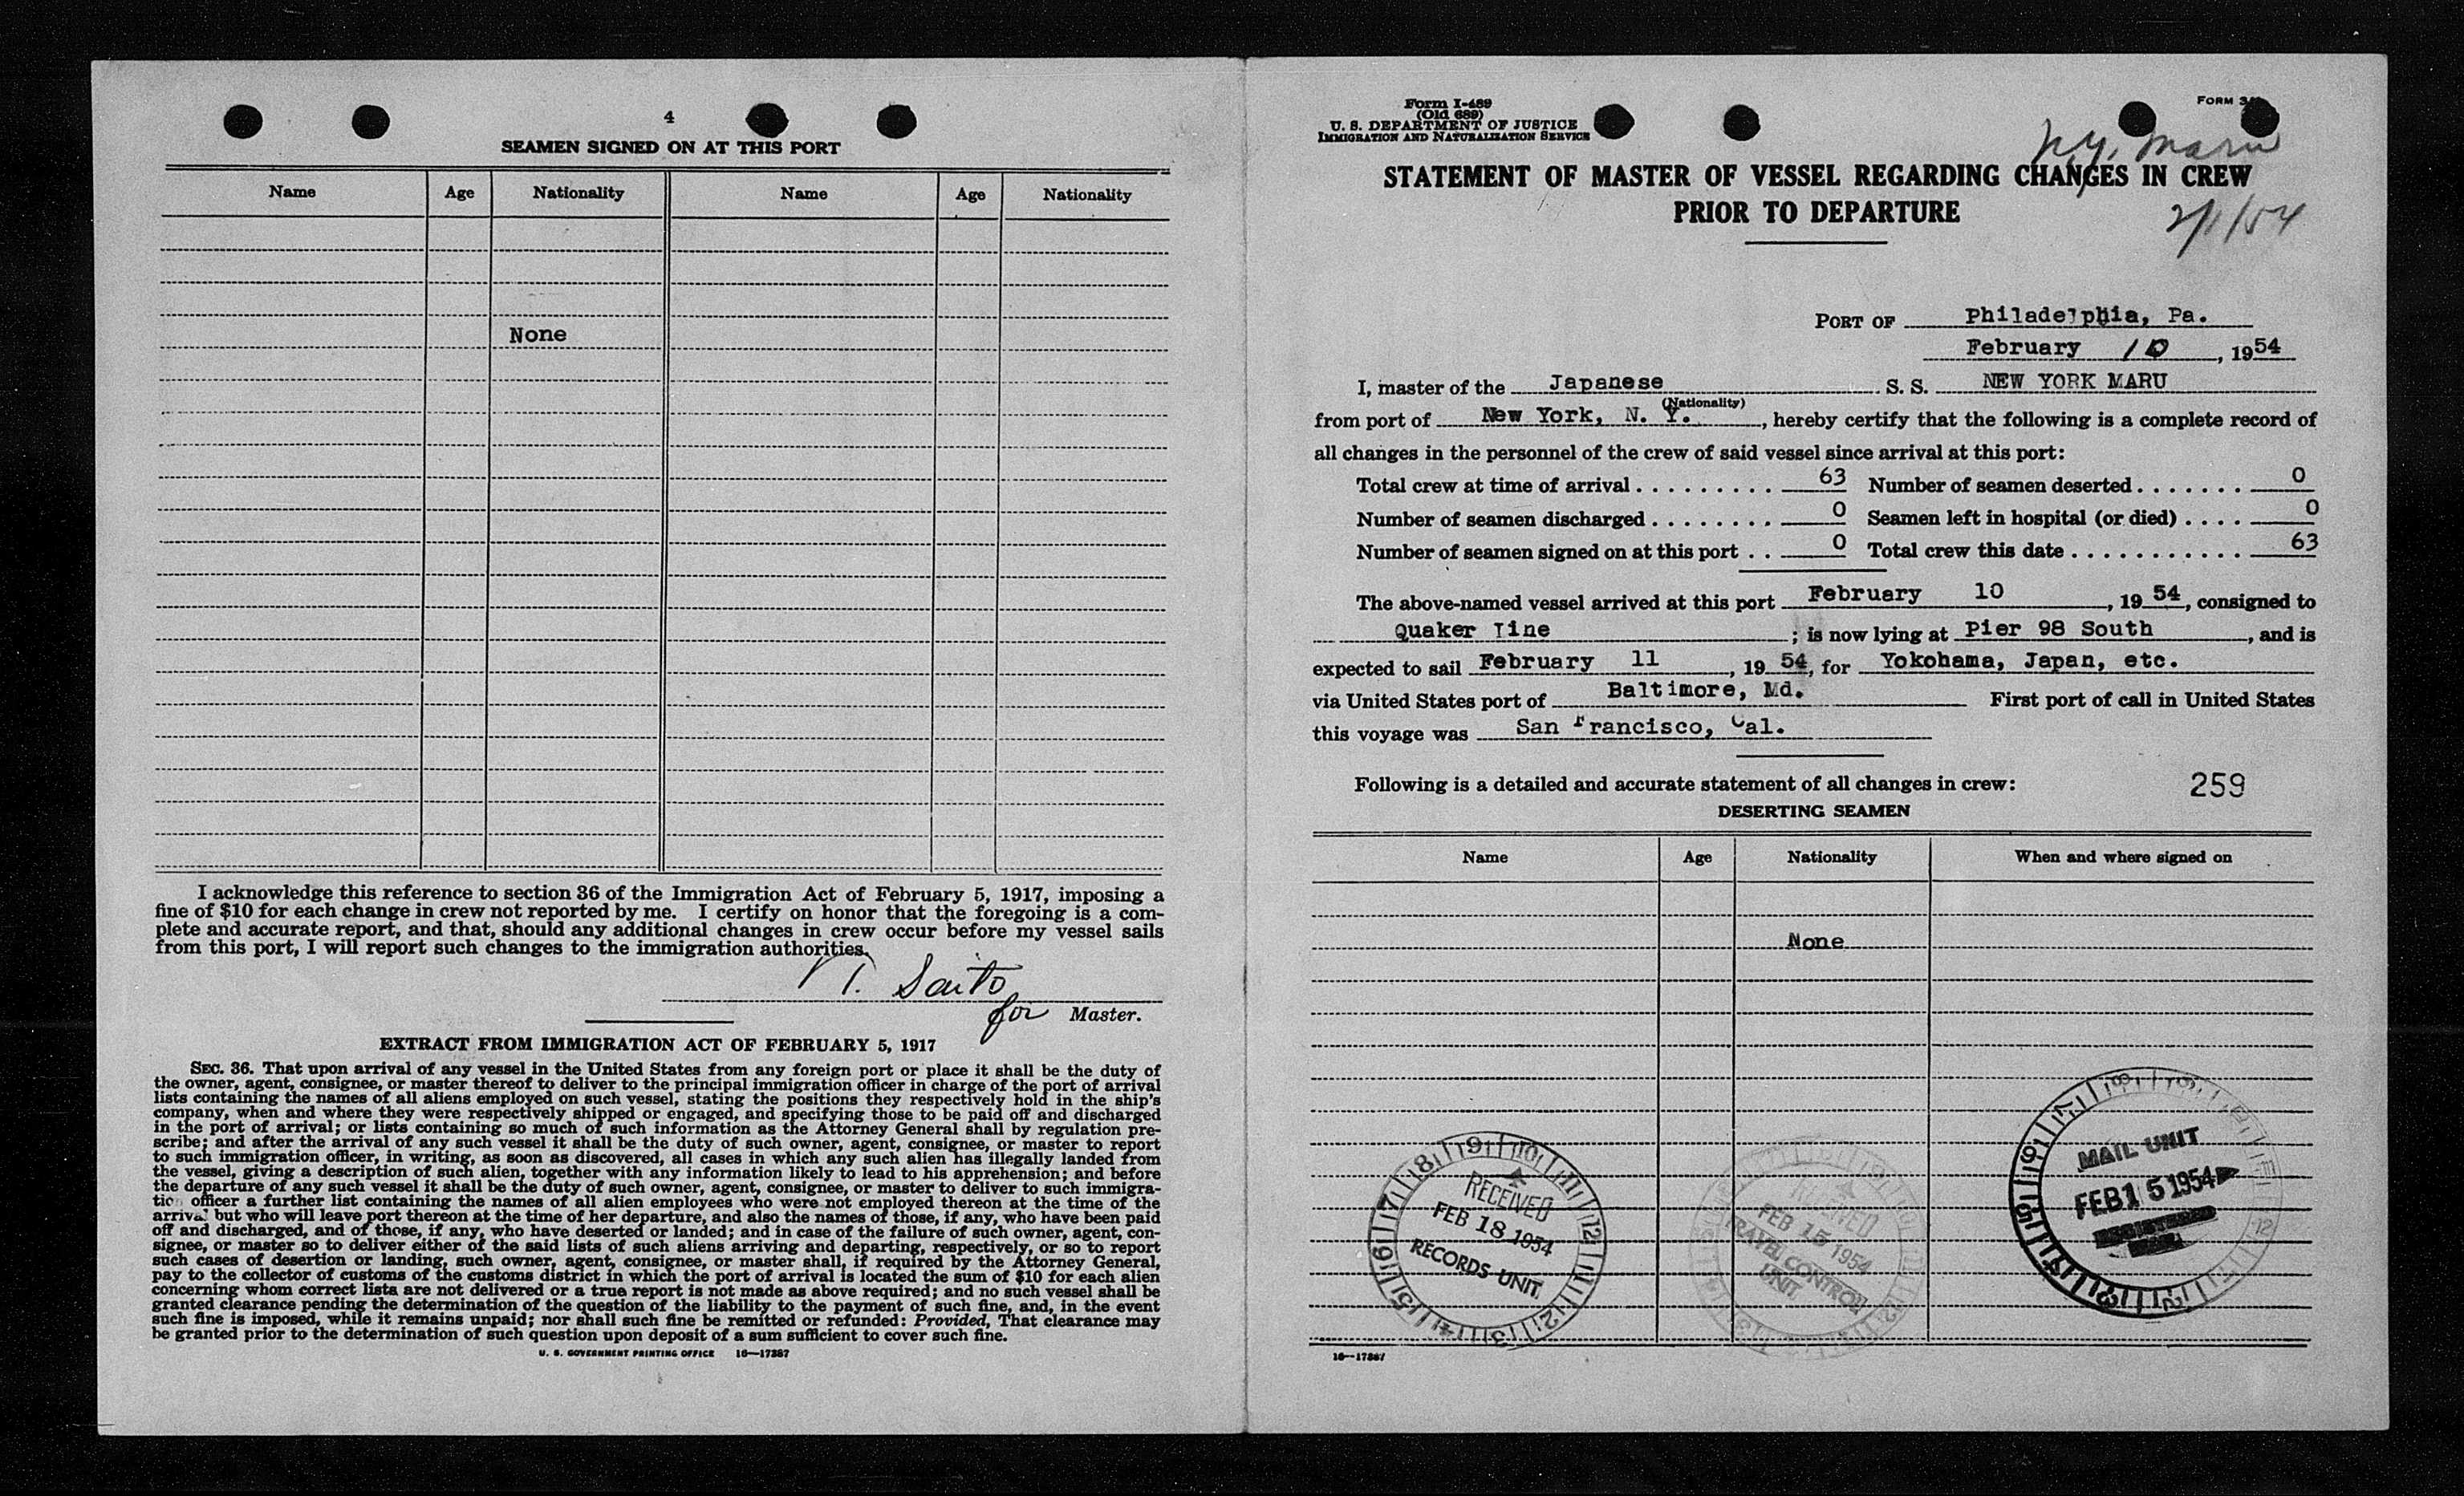 4
SEAMEN SIGNED ON AT THIS PORT
Name Age Nationality Name Age Nationality
None
I acknowledge this reference to section 36 of the Immigration Act of February 5, 1917, imposing a
fine of $10 for each change in crew not reported by me. I certify on honor that the foregoing is a com-
plete and accurate report, and that, should any additional changes in crew occur before my vessel sails
from this port, I will report such changes to the immigration authorities.
T. Saito
for Master.
EXTRACT FROM IMMIGRATION ACT OF FEBRUARY 5, 1917
SEC. 36. That upon arrival of any vessel in the United States from any foreign port or place it shall be the duty of
the owner, agent, consignee, or master thereof to deliver to the principal immigration officer in charge of the port of arrival
lists containing the names of all aliens employed on such vessel, stating the positions they respectively hold in the ship's
company, when and where they were respectively shipped or engaged, and specifying those to be paid off and discharged
in the port of arrival; or lists containing so much of such information as the Attorney General shall by regulation pre-
scribe; and after the arrival of any such vessel it shall be the duty of such owner, agent, consignee, or master to report
to such immigration officer, in writing, as soon as discovered, all cases in which any such alien has illegally landed from
the vessel, giving a description of such alien, together with any information likely to lead to his apprehension; and before
the departure of any such vessel it shall be the duty of such owner, agent, consignee, or master to deliver to such immigra-
tion officer a further list containing the names of all alien employees who were not employed thereon at the time of the
arrival but who will leave port thereon at the time of her departure, and also the names of those, if any, who have been paid
off and discharged, and of those, if any, who have deserted or landed; and in case of the failure of such owner, agent, con-
signee, or master so to deliver either of the said lists of such aliens arriving and departing, respectively, or so to report
such cases of desertion or landing, such owner, agent, consignee, or master shall, if required by the Attorney General,
pay to the collector of customs of the customs district in which the port of arrival is located the sum of $10 for each alien
concerning whom correct lists are not delivered or a true report is not made as above required; and no such vessel shall be
granted clearance pending the determination of the question of the liability to the payment of such fine, and, in the event
such fine is imposed, while it remains unpaid; nor shall such fine be remitted or refunded: Provided, That clearance may
be granted prior to the determination of such question upon deposit of a sum sufficient to cover such fine.
U. S. GOVERNMENT PRINTING OFFICE 16—17387
Form I-489
(Old 689)
U. S. DEPARTMENT OF JUSTICE
IMMIGRATION AND NATURALIZATION SERVICE
FORM
N.Y. Maru
STATEMENT OF MASTER OF VESSEL REGARDING CHANGES IN CREW
PRIOR TO DEPARTURE
2/1/54
PORT OF Philadelphia, Pa.
February 10, 1954
I, master of the Japanese S. S. NEW YORK MARU
(Nationality)
from port of New York, N. Y., hereby certify that the following is a complete record of
all changes in the personnel of the crew of said vessel since arrival at this port:
Total crew at time of arrival . . . . . . . . . 63 Number of seamen deserted . . . . . . . 0
Number of seamen discharged . . . . . . . . 0 Seamen left in hospital (or died) . . . . 0
Number of seamen signed on at this port . . 0 Total crew this date . . . . . . . . . . . 63
The above-named vessel arrived at this port February 10, 1954, consigned to
Quaker Line; is now lying at Pier 98 South, and is
expected to sail February 11, 1954, for Yokohama, Japan, etc.
via United States port of Baltimore, Md. First port of call in United States
this voyage was San Francisco, Cal.
Following is a detailed and accurate statement of all changes in crew: 259
DESERTING SEAMEN
Name Age Nationality When and where signed on
None
RECEIVED
FEB 18 1954
RECORDS UNIT
RECEIVED
FEB 15 1954
TRAVEL CONTROL
UNIT
MAIL UNIT
FEB 15 1954
REGISTERED
16—17387